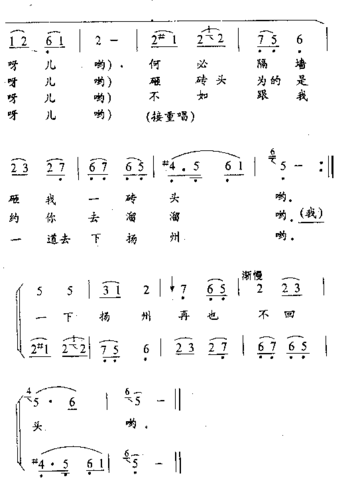 1 2 6 1 | 2 - | 2 #1 2 1 2 | 7 5 6 |
呀 儿 哟）. 何 必 隔 墙
呀 儿 哟） 砸 砖 头 为 的 是
呀 儿 哟） 不 如 跟 我
呀 儿 哟） (接重唱)
2 3 2 7 | 6 7 6 5 | #4 · 5 6 1 | 6 5 - :||
砸 我 一 砖 头 哟.
约 你 去 溜 溜 哟. (我)
一 道去 下 扬 州 哟.
渐慢
5 5 | 3 1 2 | 7 6 5 | 2 2 3 |
一 下 扬 州 再 也 不 回
2 #1 2 2 | 7 5 6 | 2 3 2 7 | 6 7 6 5 |
4 5 · 6 | 6 5 - ||
头 哟.
#4 · 5 6 1 | 6 5 - ||